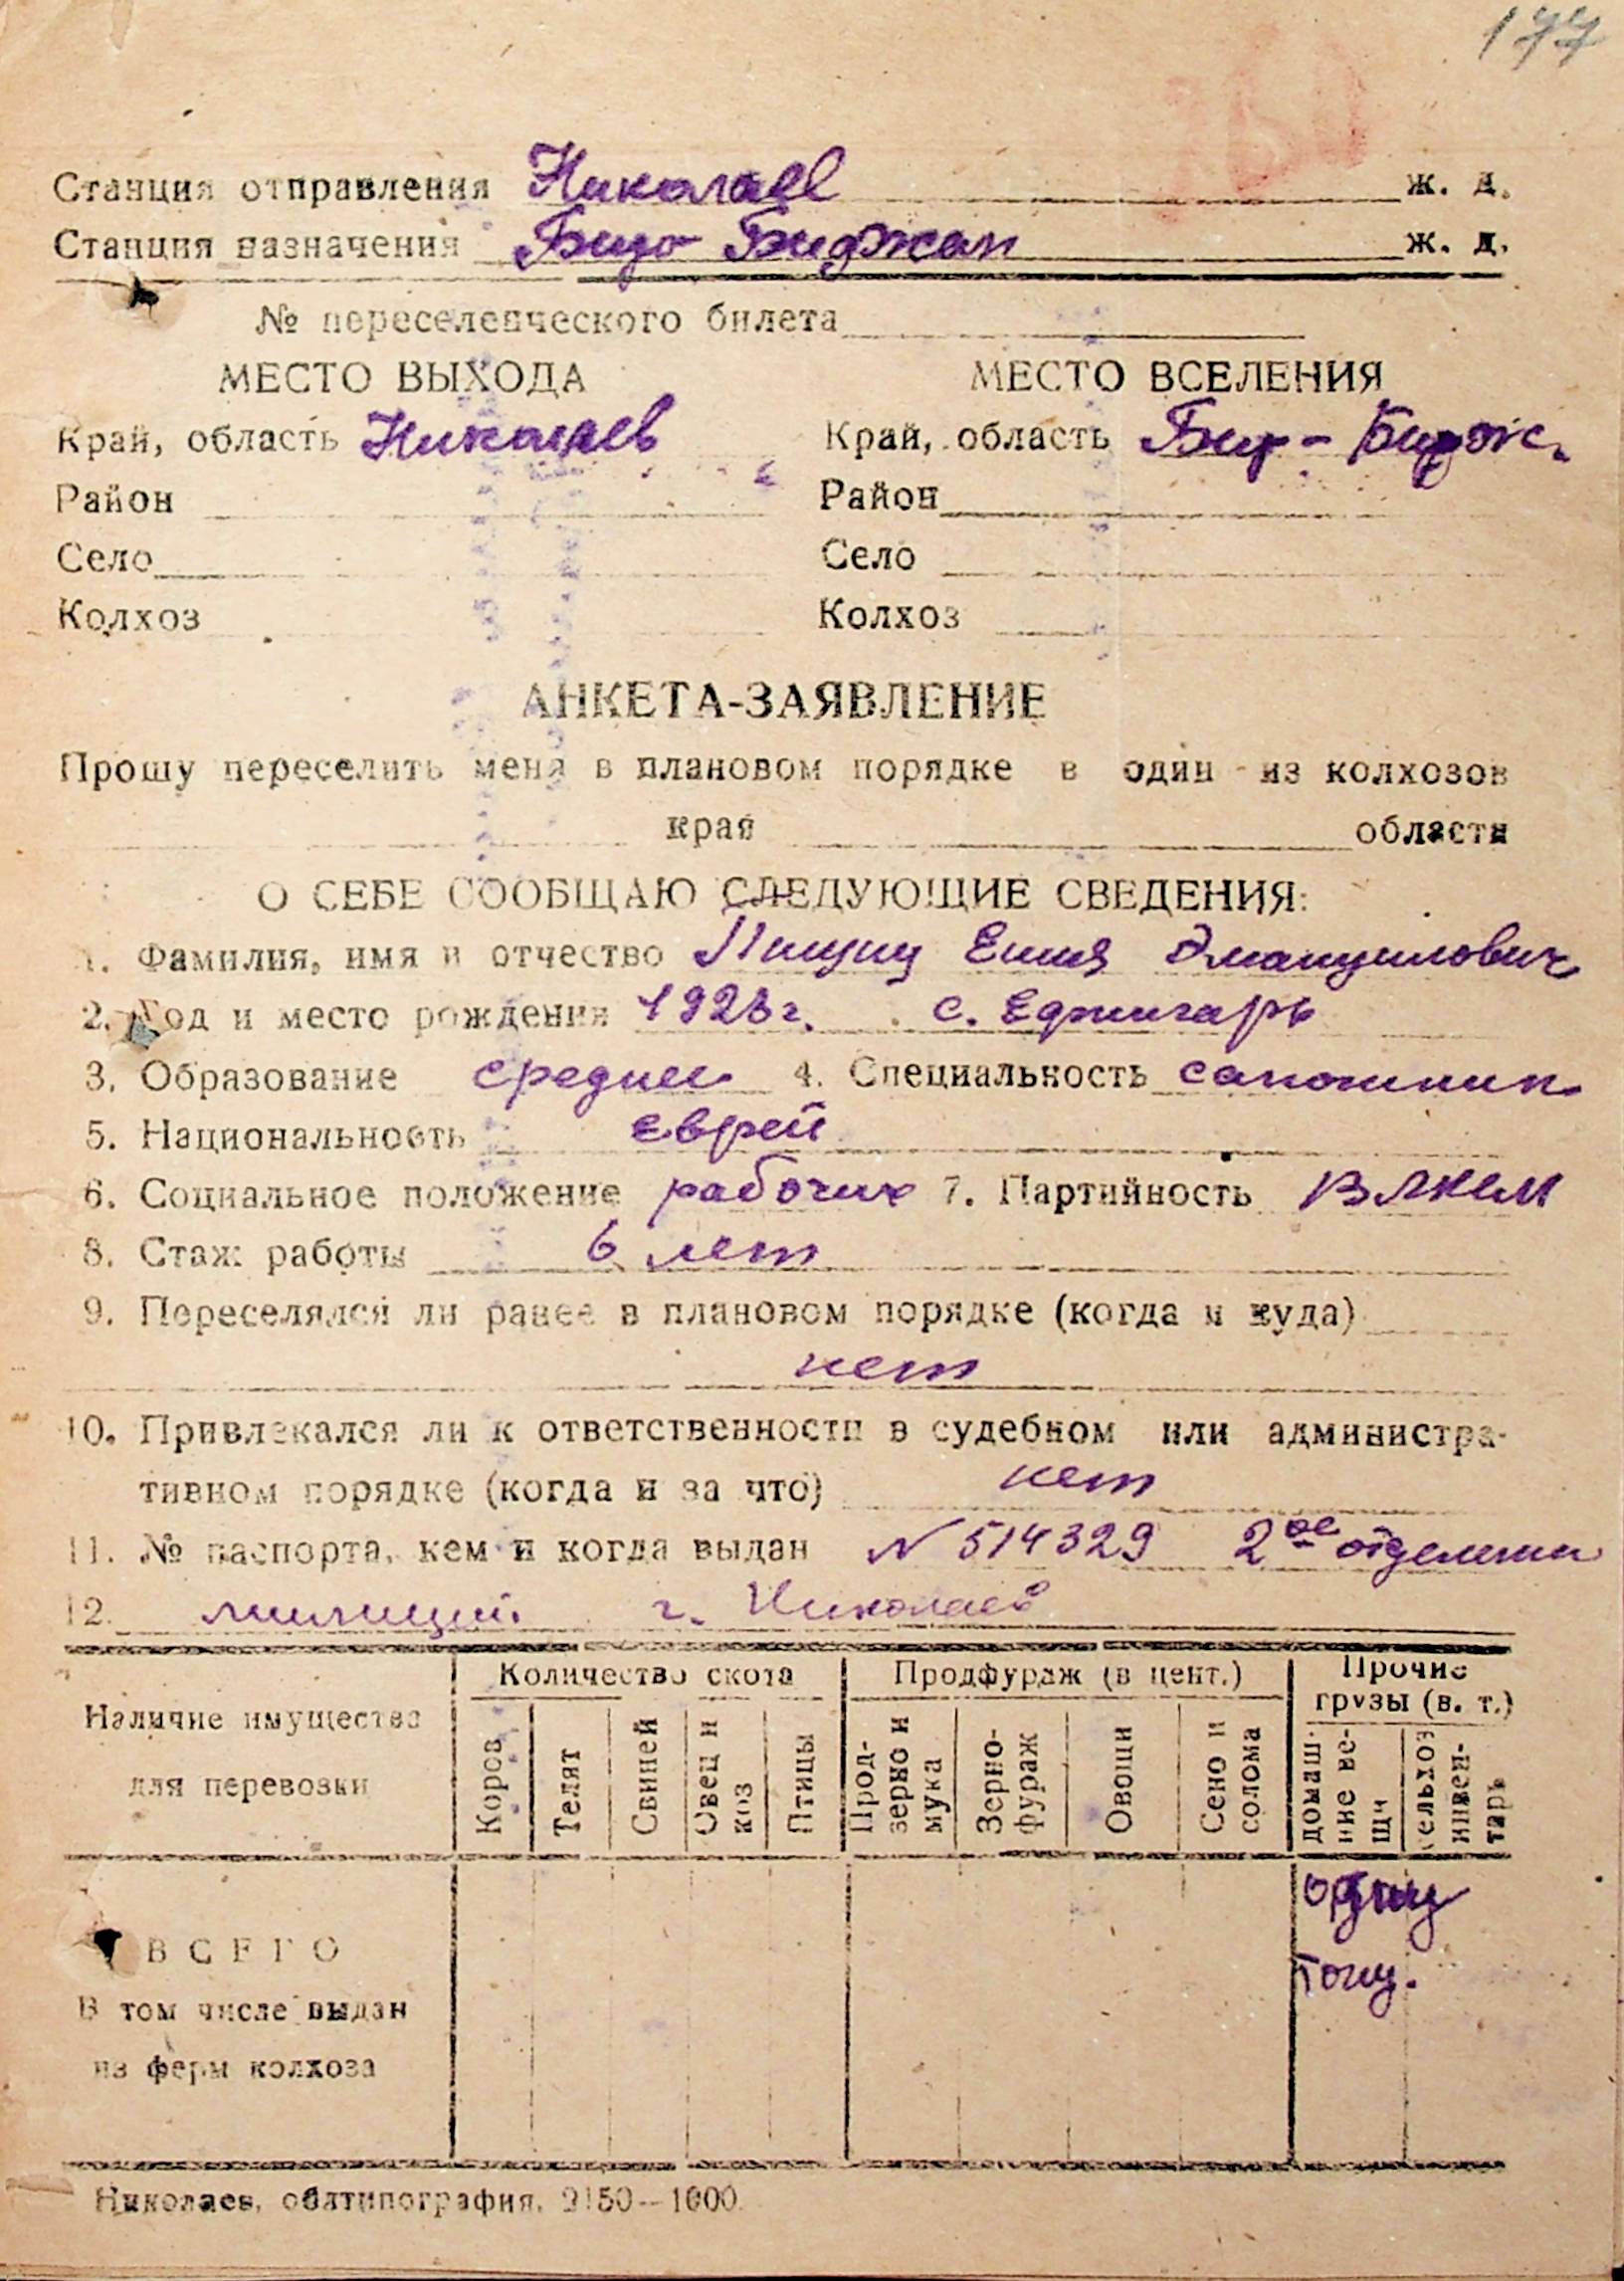 177
Станция отправления Николаев ж. д.
Станция назначения Биро Биджан ж. д.
№ переселенческого билета
МЕСТО ВЫХОДА МЕСТО ВСЕЛЕНИЯ
Край, область Николаев Край, область Бир-Бидж.
Район Район
Село Село
Колхоз Колхоз
АНКЕТА-ЗАЯВЛЕНИЕ
Прошу переселить меня в плановом порядке в один из колхозов
края области
О СЕБЕ СООБЩАЮ СЛЕДУЮЩИЕ СВЕДЕНИЯ:
1. Фамилия, имя и отчество Эмануилович
2. Год и место рождения 1923г. с. Еджигарь
3. Образование среднее 4. Специальность сапожник
5. Национальность еврей
6. Социальное положение рабочих 7. Партийность ВЛКСМ
8. Стаж работы 6 лет
9. Переселялся ли ранее в плановом порядке (когда и куда)
нет
10. Привлекался ли к ответственности в судебном или администра-
тивном порядке (когда и за что) нет
11. № паспорта, кем и когда выдан N 514329 2ое отделении
12. милиций. г. Николаев
Наличие имущества для перевозки
Количество скота
Продфураж (в цент.)
Прочие грузы (в. т.)
Коров
Телят
Свиней
Овец и коз
Птицы
Прод-зерно и мука
Зерно-фураж
Овощи
Сено и солома
домаш-ние ве-щи
сельхоз инвен-тарь
одну
тону.
ВСЕГО
В том числе выдан
из ферм колхоза
Николаев, облтипография. 2150—1000.